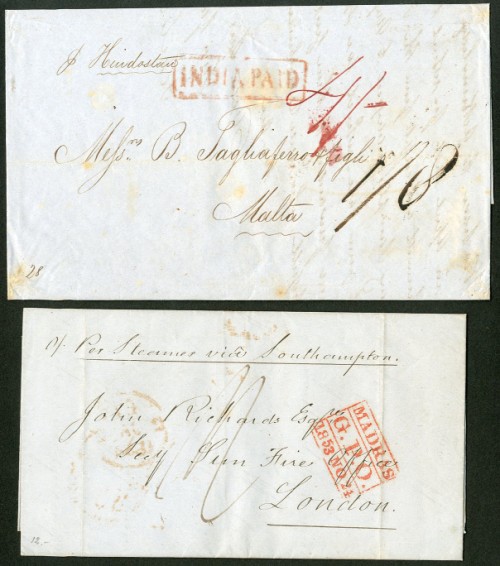 p Hindostan
INDIA PAID
4/-
Messrs B. Tagliaferro & figli
1/8
Malta
28
p/. Per Steamer viâ Southampton.
John Richards Esqre
Secy Sun Fire Office
London.
MADRAS
G.P.O.
1853 NO 24
12.-